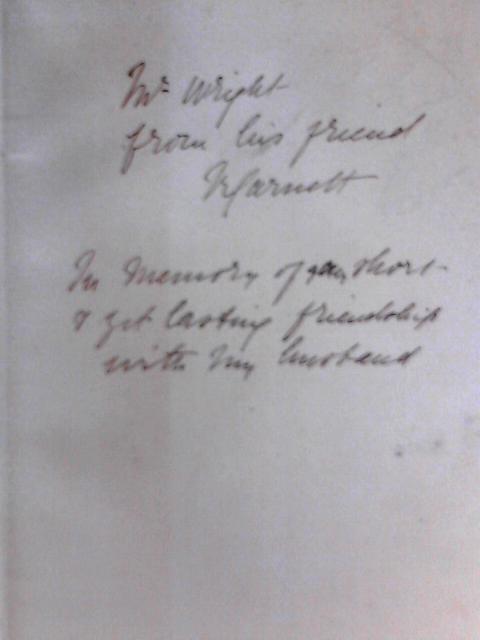 Mr Wright
from his friend
In Memory of short
& yet lasting friendship
with my husband